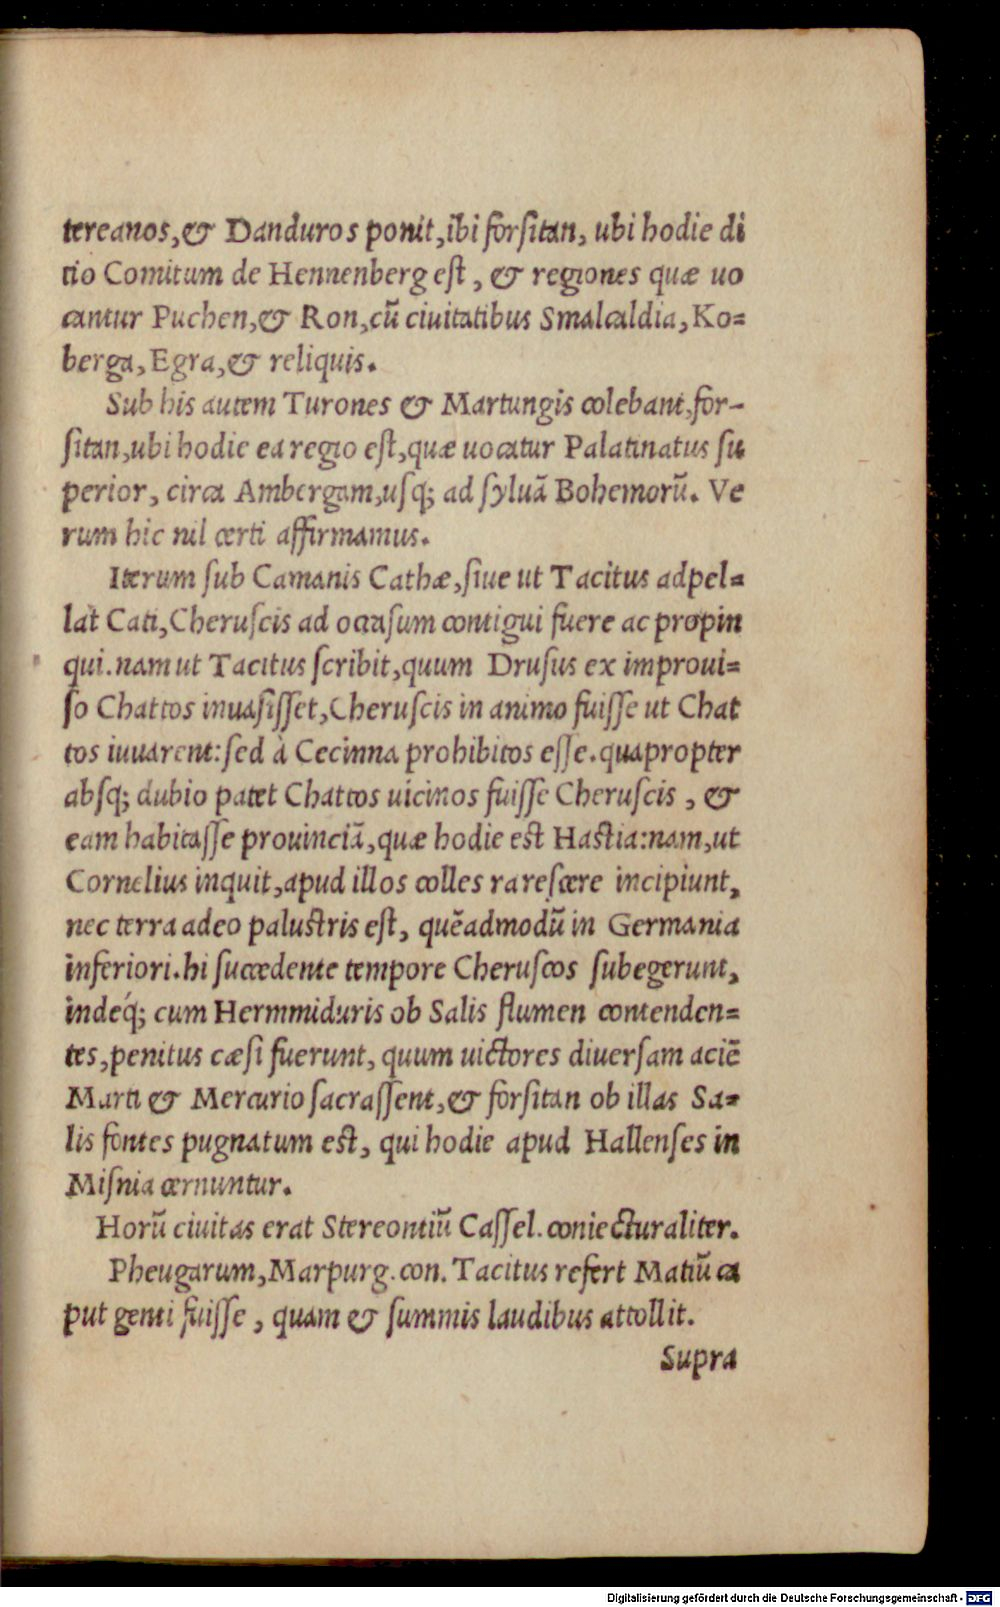 tereanos,& Danduros ponit,ibi forſitan, ubi hodie di
tio Comitum de Hennenberg eſt, & regiones quæ uo
cantur Puchen,& Ron,cũ ciuitatibus Smalcaldia,Ko=
berga, Egra,& reliquis.
Sub his autem Turones & Martungis colebant,for-
ſitan,ubi hodie ea regio eſt,quæ uocatur Palatinatus ſu
perior, circa Ambergam,uſq; ad ſyluã Bohemorũ. Ve
rum hic nil certi affirmamus.
Iterum ſub Camanis Cathæ,ſiue ut Tacitus adpel=
lat Cati,Cheruſcis ad occaſum contigui fuere ac propin
qui.nam ut Tacitus ſcribit,quum Druſus ex improui=
ſo Chattos inuaſiſſet,Cheruſcis in animo fuiſſe ut Chat
tos iuuarent:ſed à Cecinna prohibitos eſſe.quapropter
abſq; dubio patet Chattos uicinos fuiſſe Cheruſcis, &
eam habitaſſe prouinciã,quæ hodie est Haſtia:nam,ut
Cornelius inquit,apud illos colles rareſcere incipiunt,
nec terra adeo paluſtris eſt, quẽadmodũ in Germania
inferiori.hi ſuccedente tempore Cheruſcos ſubegerunt,
indeq́; cum Hermmiduris ob Salis flumen contenden=
tes,penitus cæſi fuerunt, quum uictores diuerſam aciẽ
Marti & Mercurio ſacraſſent,& forſitan ob illas Sa=
lis fontes pugnatum eſt, qui hodie apud Hallenſes in
Miſnia cernuntur.
Horũ ciuitas erat Stereontiũ Caſſel.coniecturaliter.
Pheugarum,Marpurg.con.Tacitus refert Matiũ ca
put genti fuiſſe, quam & ſummis laudibus attollit.
Supra
Digitalisierung gefördert durch die Deutsche Forschungsgemeinschaft - DFG